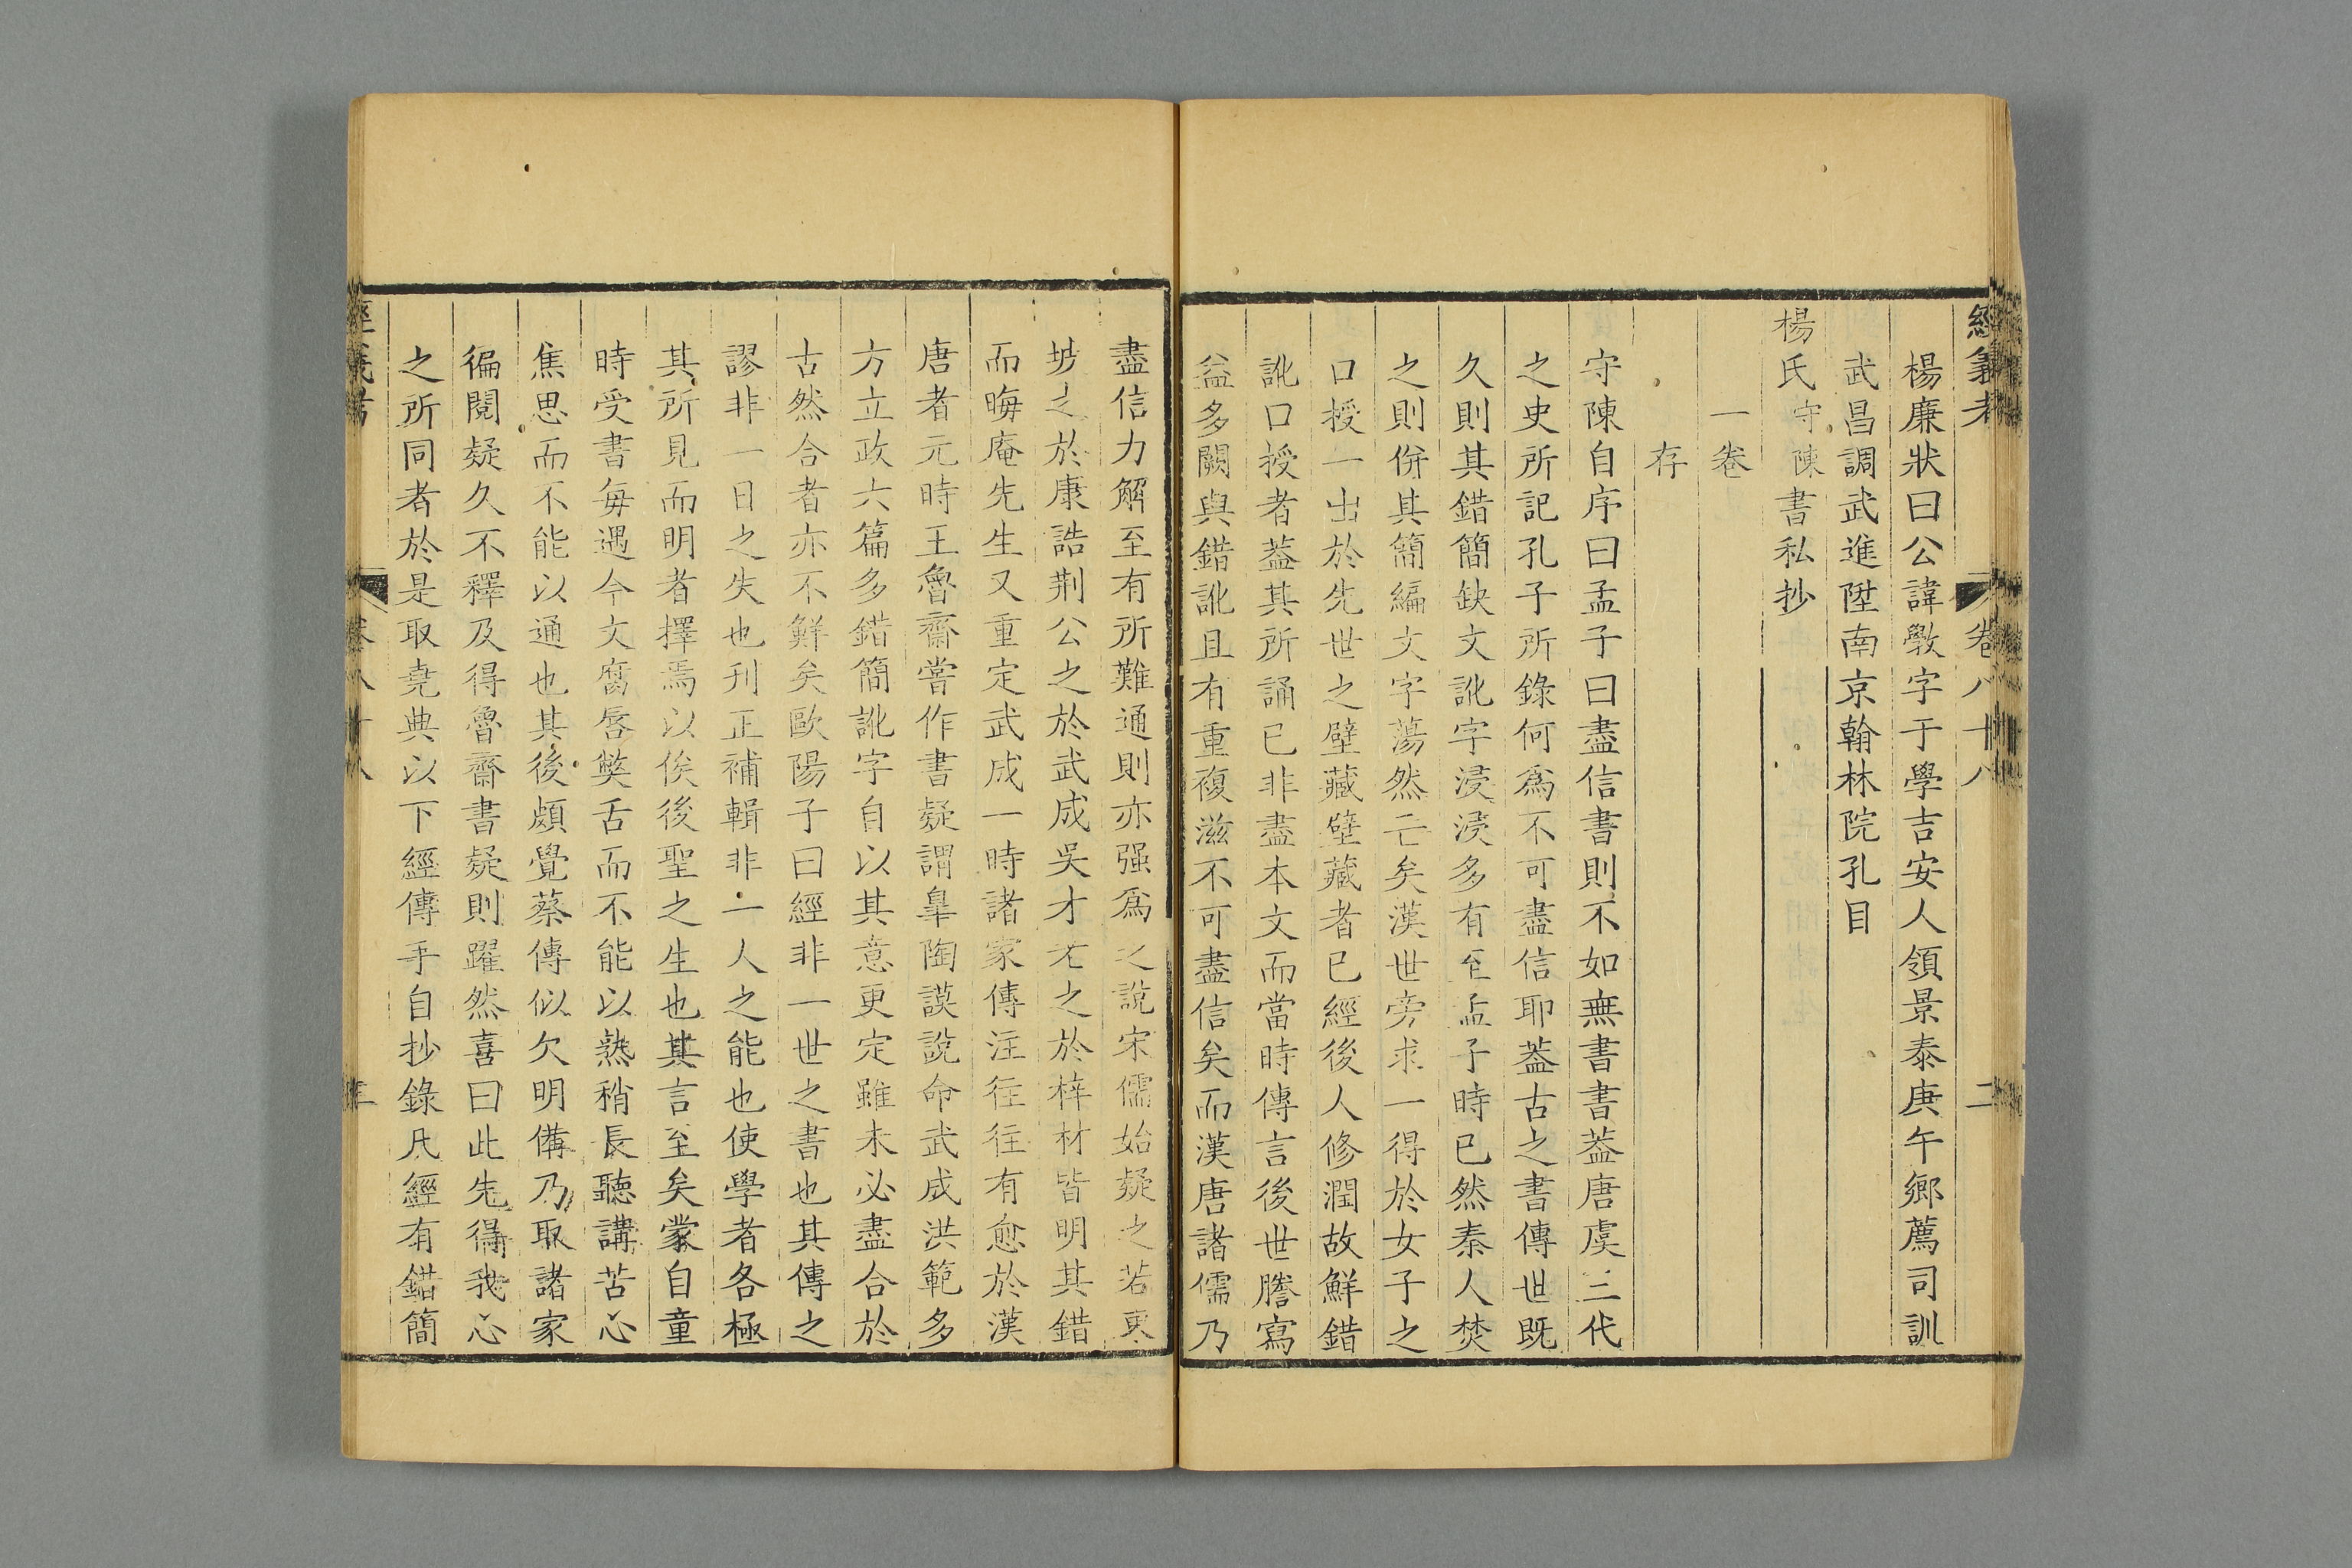 經義考
卷八十八
二
楊廉狀曰公諱斆字于學吉安人領景泰庚午鄉薦司訓
武昌調武進陞南京翰林院孔目
楊氏守陳書私抄
一卷
存
守陳自序曰孟子曰盡信書則不如無書書葢唐虞三代
之史所記孔子所錄何為不可盡信耶葢古之書傳世既
久則其錯簡缺文訛字浸浸多有至孟子時已然秦人焚
之則併其簡編文字蕩然亡矣漢世旁求一得於女子之
口授一出於先世之壁藏壁藏者已經後人修潤故鮮錯
訛口授者葢其所誦已非盡本文而當時傳言後世謄寫
益多闕與錯訛且有重複滋不可盡信矣而漢唐諸儒乃
盡信力解至有所難通則亦强為之說宋儒始疑之若東
坡之於康誥荆公之於武成吳才老之於梓材皆明其錯
而晦庵先生又重定武成一時諸家傳注往往有愈於漢
唐者元時王魯齋嘗作書疑謂臯陶謨說命武成洪範多
方立政六篇多錯簡訛字自以其意更定雖未必盡合於
古然合者亦不鮮矣歐陽子曰經非一世之書也其傳之
謬非一日之失也刊正補輯非一人之能也使學者各極
其所見而明者擇焉以俟後聖之生也其言至矣蒙自童
時受書每遇今文腐唇獘舌而不能以熟稍長聽講苦心
焦思而不能以通也其後頗覺蔡傳似欠明備乃取諸家
徧閱疑久不釋及得魯齋書疑則躍然喜曰此先得我心
之所同者於是取堯典以下經傳手自抄錄凡經有錯簡
經義考
卷八十八